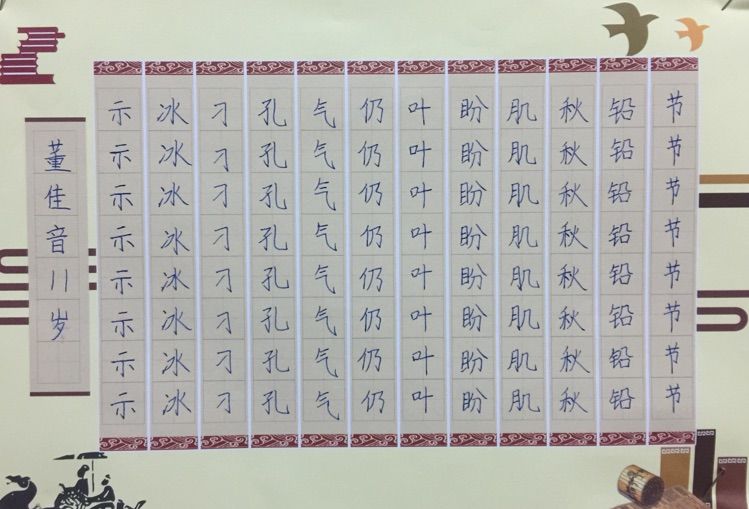 节节节节节节节节
铅铅铅铅铅铅铅铅
秋秋秋秋秋秋秋秋
肌肌肌肌肌肌肌肌
盼盼盼盼盼盼盼盼
叶叶叶叶叶叶叶叶
仍仍仍仍仍仍仍仍
气气气气气气气气
孔孔孔孔孔孔孔孔
刁刁刁刁刁刁刁刁
冰冰冰冰冰冰冰冰
示示示示示示示示
董佳音11岁